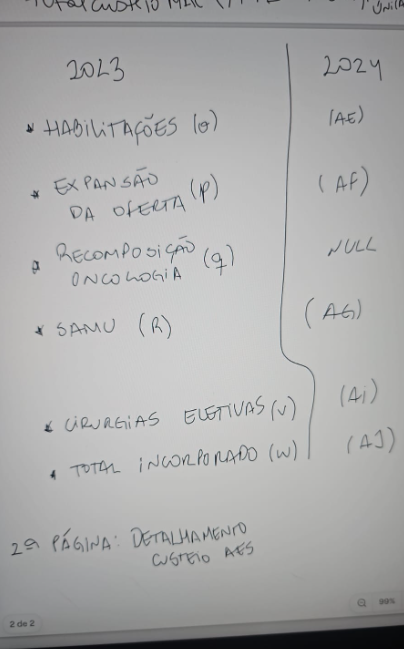 2023 2024
* HABILITAÇÕES (O) (AE)
* EXPANSÃO
DA OFERTA (P) (AF)
* RECOMPOSIÇÃO
ONCOLOGIA (q) NULL
* SAMU (R) (AG)
* CIRURGIAS ELETIVAS (V) (Ai)
* TOTAL INCORPORADO (W) (AJ)
2ª PÁGINA: DETALHAMENTO
CUSTEIO AES
99%
2 de 2